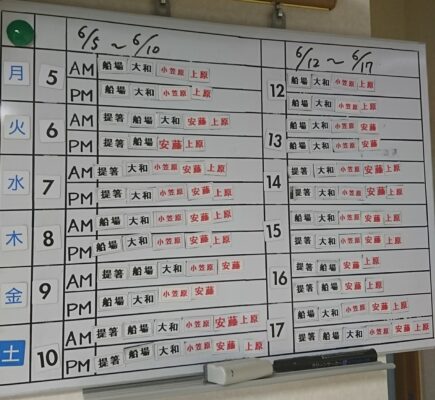 6/5 ~ 6/10
6/12 ~ 6/17
月 5 AM 船場 大和 小笠原 上原
PM 船場 大和 小笠原 上原
火 6 AM 提箸 船場 安藤 上原
PM 提箸 船場 安藤 上原
水 7 AM 提箸 大和 小笠原 安藤 上原
PM 提箸 大和 小笠原 安藤 上原
木 8 AM 船場 大和 小笠原 安藤 上原
PM 船場 大和 小笠原 安藤 上原
金 9 AM 提箸 船場 小笠原 安藤
PM 提箸 船場 小笠原 安藤
土 10 AM 提箸 船場 大和 小笠原 安藤 上原
PM 提箸 船場 大和 小笠原 安藤 上原
12 船場 大和 小笠原 上原
船場 大和 小笠原 上原
13 船場 大和 小笠原 安藤 上原
船場 大和 小笠原 安藤
14 提箸 大和 小笠原 安藤 上原
提箸 大和 小笠原 安藤 上原
15 船場 大和 小笠原 安藤 上原
提箸 大和 小笠原 安藤 上原
16 提箸 船場 安藤 上原
提箸 船場 安藤 上原
17 船場 大和 小笠原 安藤 上原
提箸 船場 大和 小笠原 安藤 上原